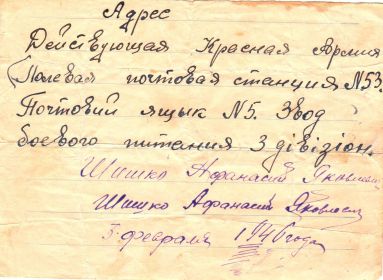 Адрес
Действующая Красная Армия
(Полевая почтовая станция N53.
Почтовий ящык N5. Звод
боевого питания 3 дівізіон.
Шишко Афанасий Яковлевич
Шишко Афанасий Яковлевич
5. февраля 1940 года